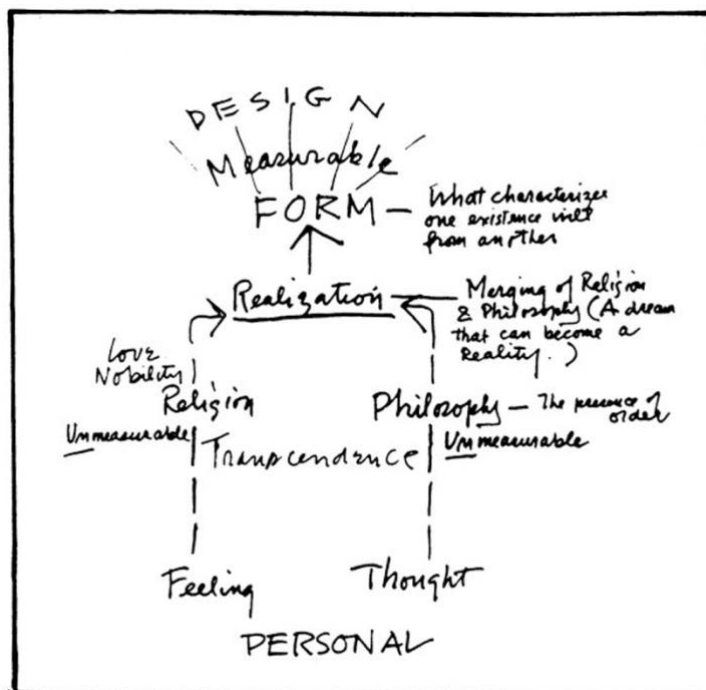 DESIGN
Measurable
FORM — What characterizes
one existence will
from another
Realization — Merging of Religion
& Philosophy (A dream
that can become a
Reality.)
Love
Nobility
Religion
Philosophy — The presence of
order
Unmeasurable
Unmeasurable
Transcendence
Feeling
Thought
PERSONAL